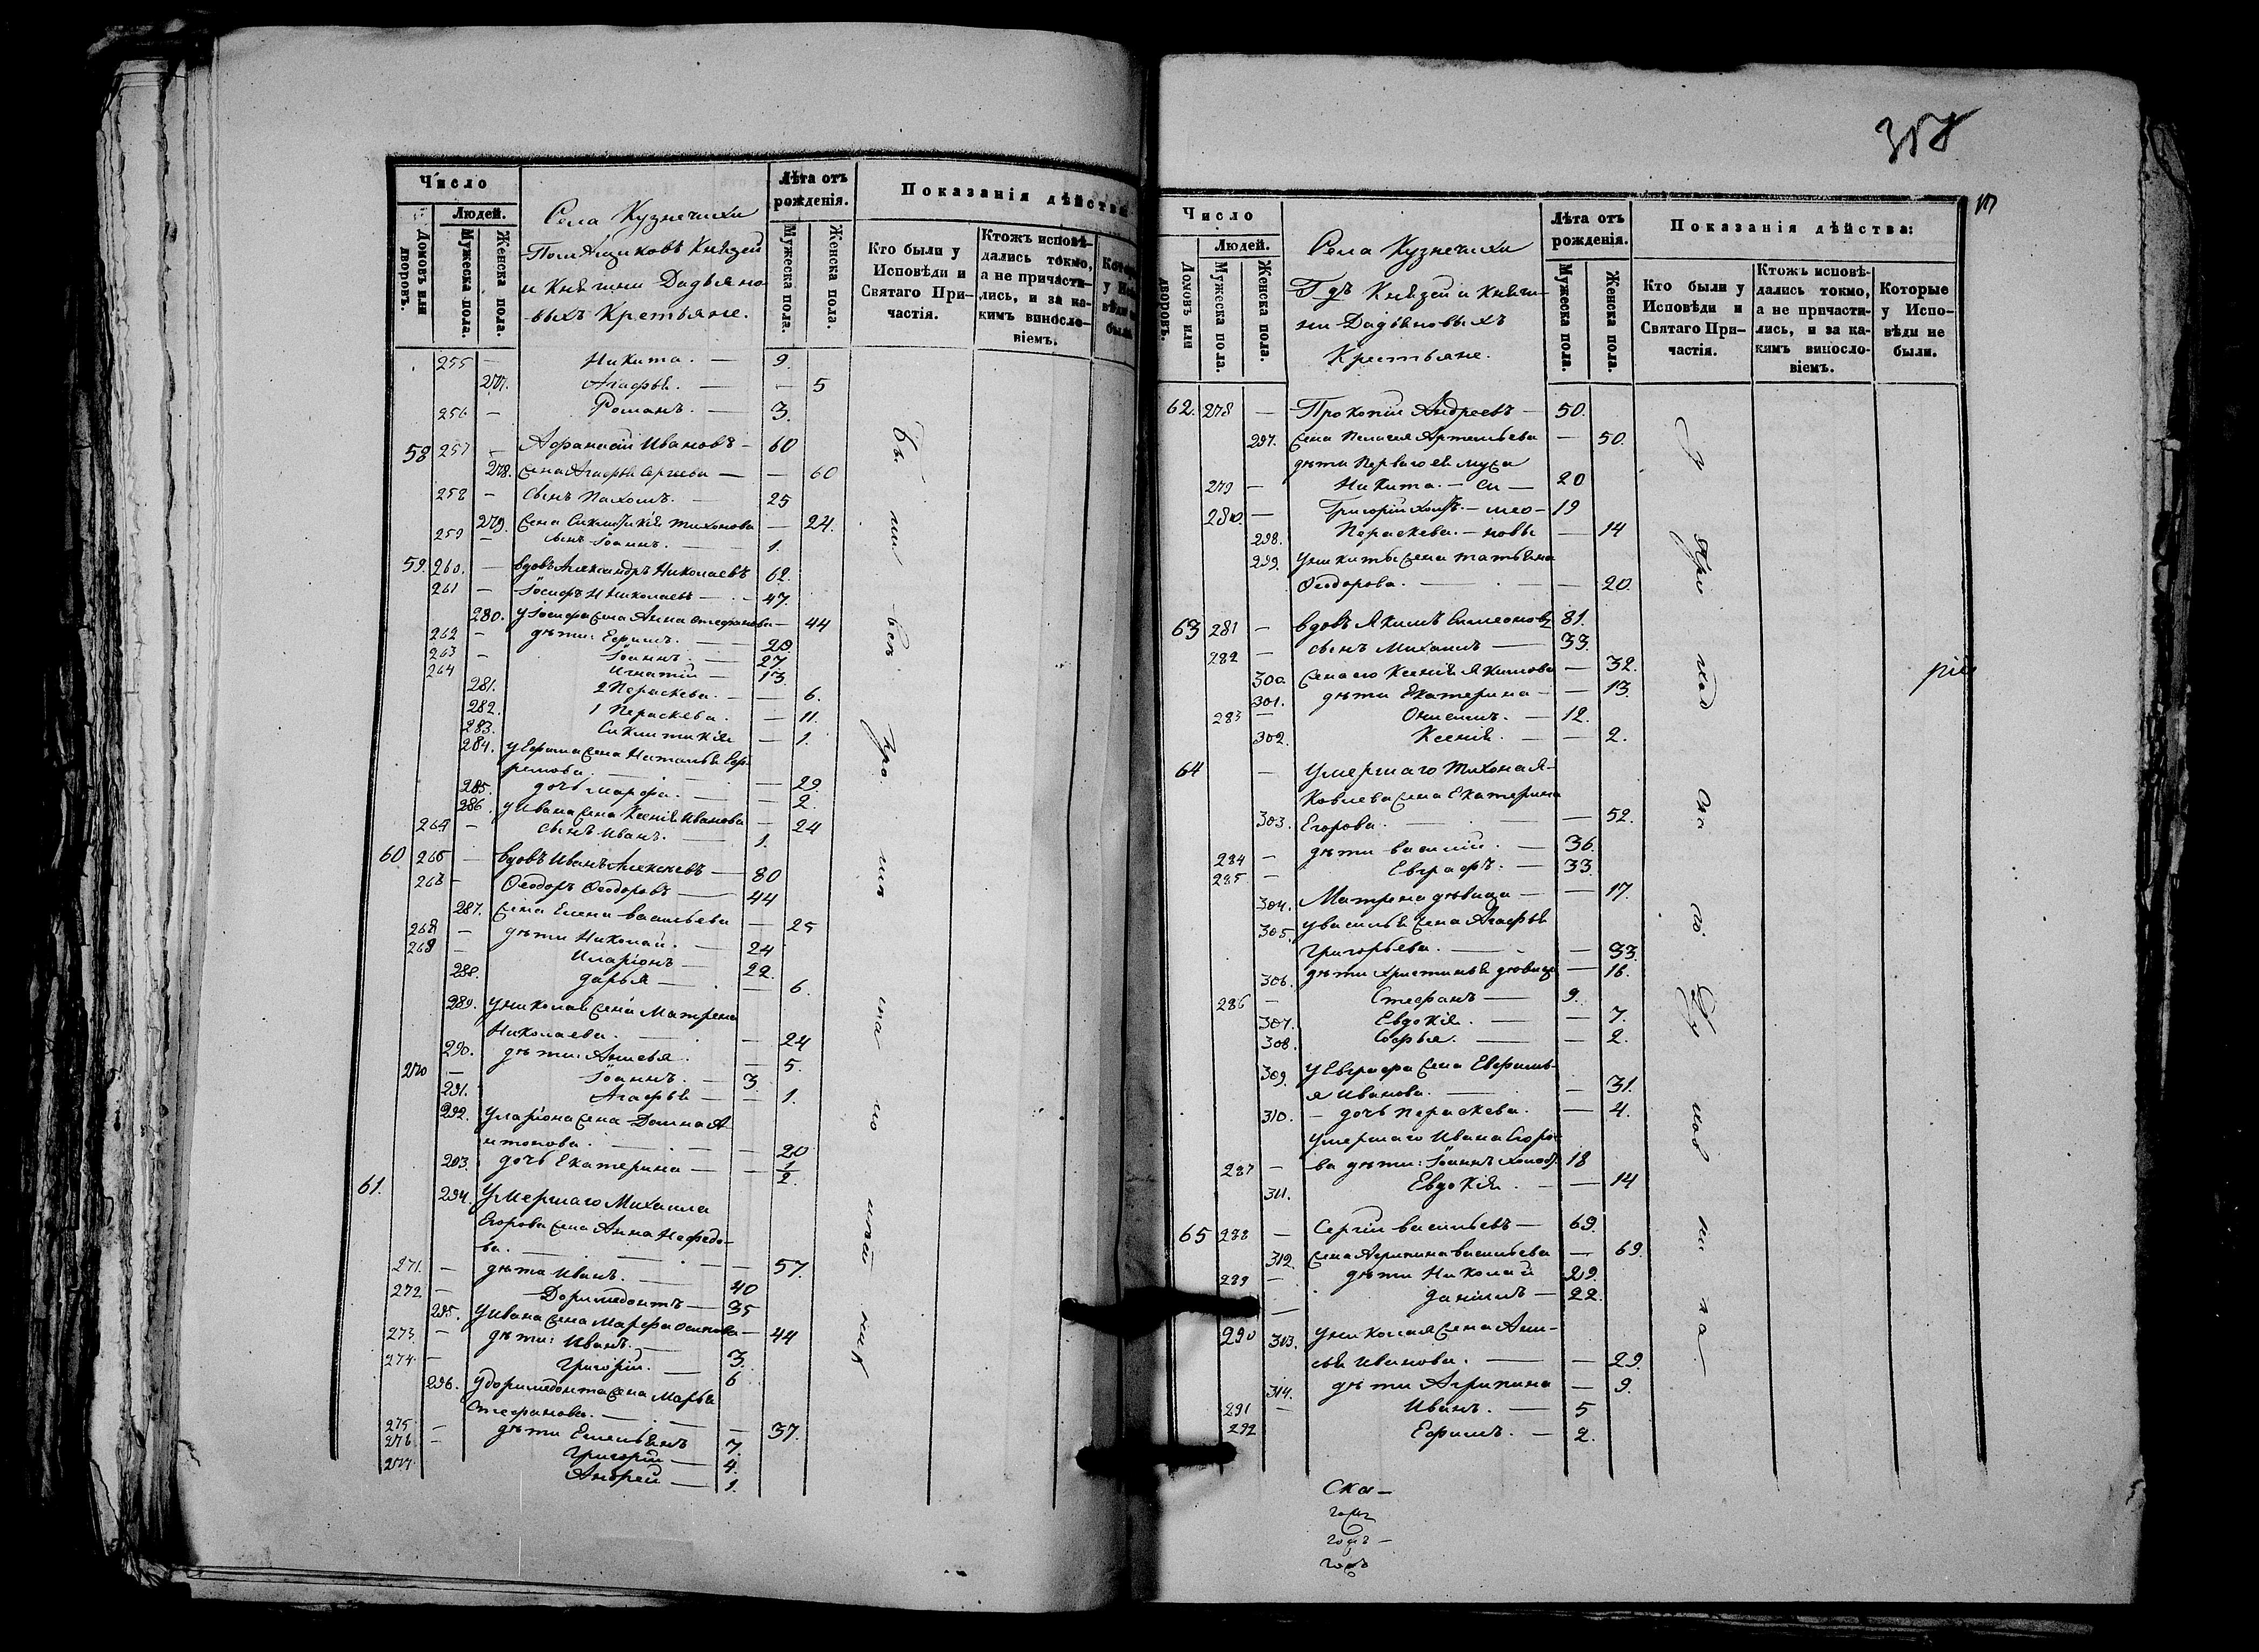 Число
Людей.
Домовъ или дворовъ.
Мужеска пола.
Женска пола.
Села Кузнечихи
Помѣщиковъ Князей
и Княжни Дадьяно-
выхъ Крестьяне.
Лѣта отъ рожденія.
Мужеска пола.
Женска пола.
Показанія дѣйства
Кто были у Исповѣди и Святаго При-частія.
Ктожъ исповѣ-дались токмо, а не причасти-лись, и за ка-кимъ винословіемъ.
255 — Никита. — 9.
277. Агафья. — — 5
256 — Романъ. — 3.
58 257 — Афанасій Ивановъ — 60
278. жена Агафья Сергѣева — — 60
258 — сынъ Пахомъ. — 25
279. жена Синклитикія Тихонова — 24.
259 — сынъ Іоаннъ. — 1.
59. 260. — вдовъ Александръ Николаевъ 62.
261 — Іосифъ Николаевъ — 47.
280. у Іосифа жена Анна Стефанова — 44
262 — дѣти: Ефимъ. —
263 — Іоаннъ. — 27.
264 Игнатій — 13.
281. 2 Параскева. — — 6.
282. 1 Параскева. — 11.
283. Синклитикія — 1.
284. у Ефима жена Наталья Еф-
ремова. — — 29
285. дочь Марфа. — — 2.
286. у Ивана жена Ксенія Иванова — 24
сынъ Иванъ. — 1.
60 — вдовъ Иванъ Алексѣевъ — 80
Ѳеодоръ Ѳеодоровъ — 44
287. жена Елена Васильева — 25
дѣти Николай. — 24
Иларіонъ — 22.
288. Дарья — — 6.
289. у Николая жена Матрена
Николаева. — — 24
290. дѣти: Анисья. — 5.
270 — Іоаннъ. — 3.
291. Агафья — — 1.
292. у Ларіона жена Домна А-
нтонова. — — 20
293. дочь Екатерина — — 1/2.
61. 294. Умершаго Михаила
Егорова жена Анна Нефедо-
ва. — — 57.
271. — дѣти Иванъ. — 40
272 — Доримедонтъ — 35
295. у Ивана жена Марфа Осипова — 44
273. — дѣти: Иванъ. — 3.
274. — Григорій. — 6
296. у Доримедонта жена Марья
Стефанова. — — 37.
275 — дѣти Емельянъ 7.
276. — Григорій — 4.
277. Андрей — 1.
Число
Людей.
Домовъ или дворовъ.
Мужеска пола.
Женска пола.
Села Кузнечихи
Г-дъ Князей и Княж-
ни Дадьяновыхъ
Крестьяне.
Лѣта отъ рожденія.
Мужеска пола.
Женска пола.
Показанія дѣйства:
Кто были у Исповѣди и Святаго При-частія.
Ктожъ исповѣ-дались токмо, а не причасти-лись, и за ка-кимъ винословіемъ.
Которые у Испо-вѣди не были.
62. 278 — Прокопій Андреевъ — 50.
297. жена Пелагея Артемьева — 50.
дѣти перваго ея мужа
279 — Никита. — Си — 20
280. — Григорій холост. — мео — 19
298. Параскева. — новы — 14
299. у Никиты жена Татьяна
Ѳеодорова. — — 20.
63 281 — вдовъ Якимъ Симеоновъ 81.
282 — сынъ Михаилъ — 33.
300. жена его Ксенія Якимова — 32.
301. дѣти Екатерина — — 13.
283 — Онисимъ. — 12.
302. Ксенія. — — 2.
64 — Умершаго Тихона Я-
ковлева жена Екатерина
303. Егорова. — — 52.
284 — дѣти Василій. — 36.
285 — Евграфъ. — 33.
304. Матрена дѣвица — — 17.
305. у Василья жена Агафья
Григорьева. — — 33.
306. дѣти Христинья дѣвица — 16.
286 — Стефанъ — 9.
307. Евдокія. — — 7.
308. Софья. — — 2.
309. у Евграфа жена Ефимь-
я Иванова. — — 31.
310. — дочь Параскева. — 4.
Умершаго Ивана Егоро-
287 — ва дѣти: Іоаннъ холост. 18
311. Евдокія. — — 14
65 288 — Сергій Васильевъ — 69.
312. жена Агрипина Васильева — 69.
289 — дѣти Николай 29.
290 — Даніилъ — 22.
313. у Николая жена Ани-
сья Иванова. — — 29.
314. дѣти Агрипина — 9.
291 — Иванъ. — 5
292 Ефимъ. — 2.